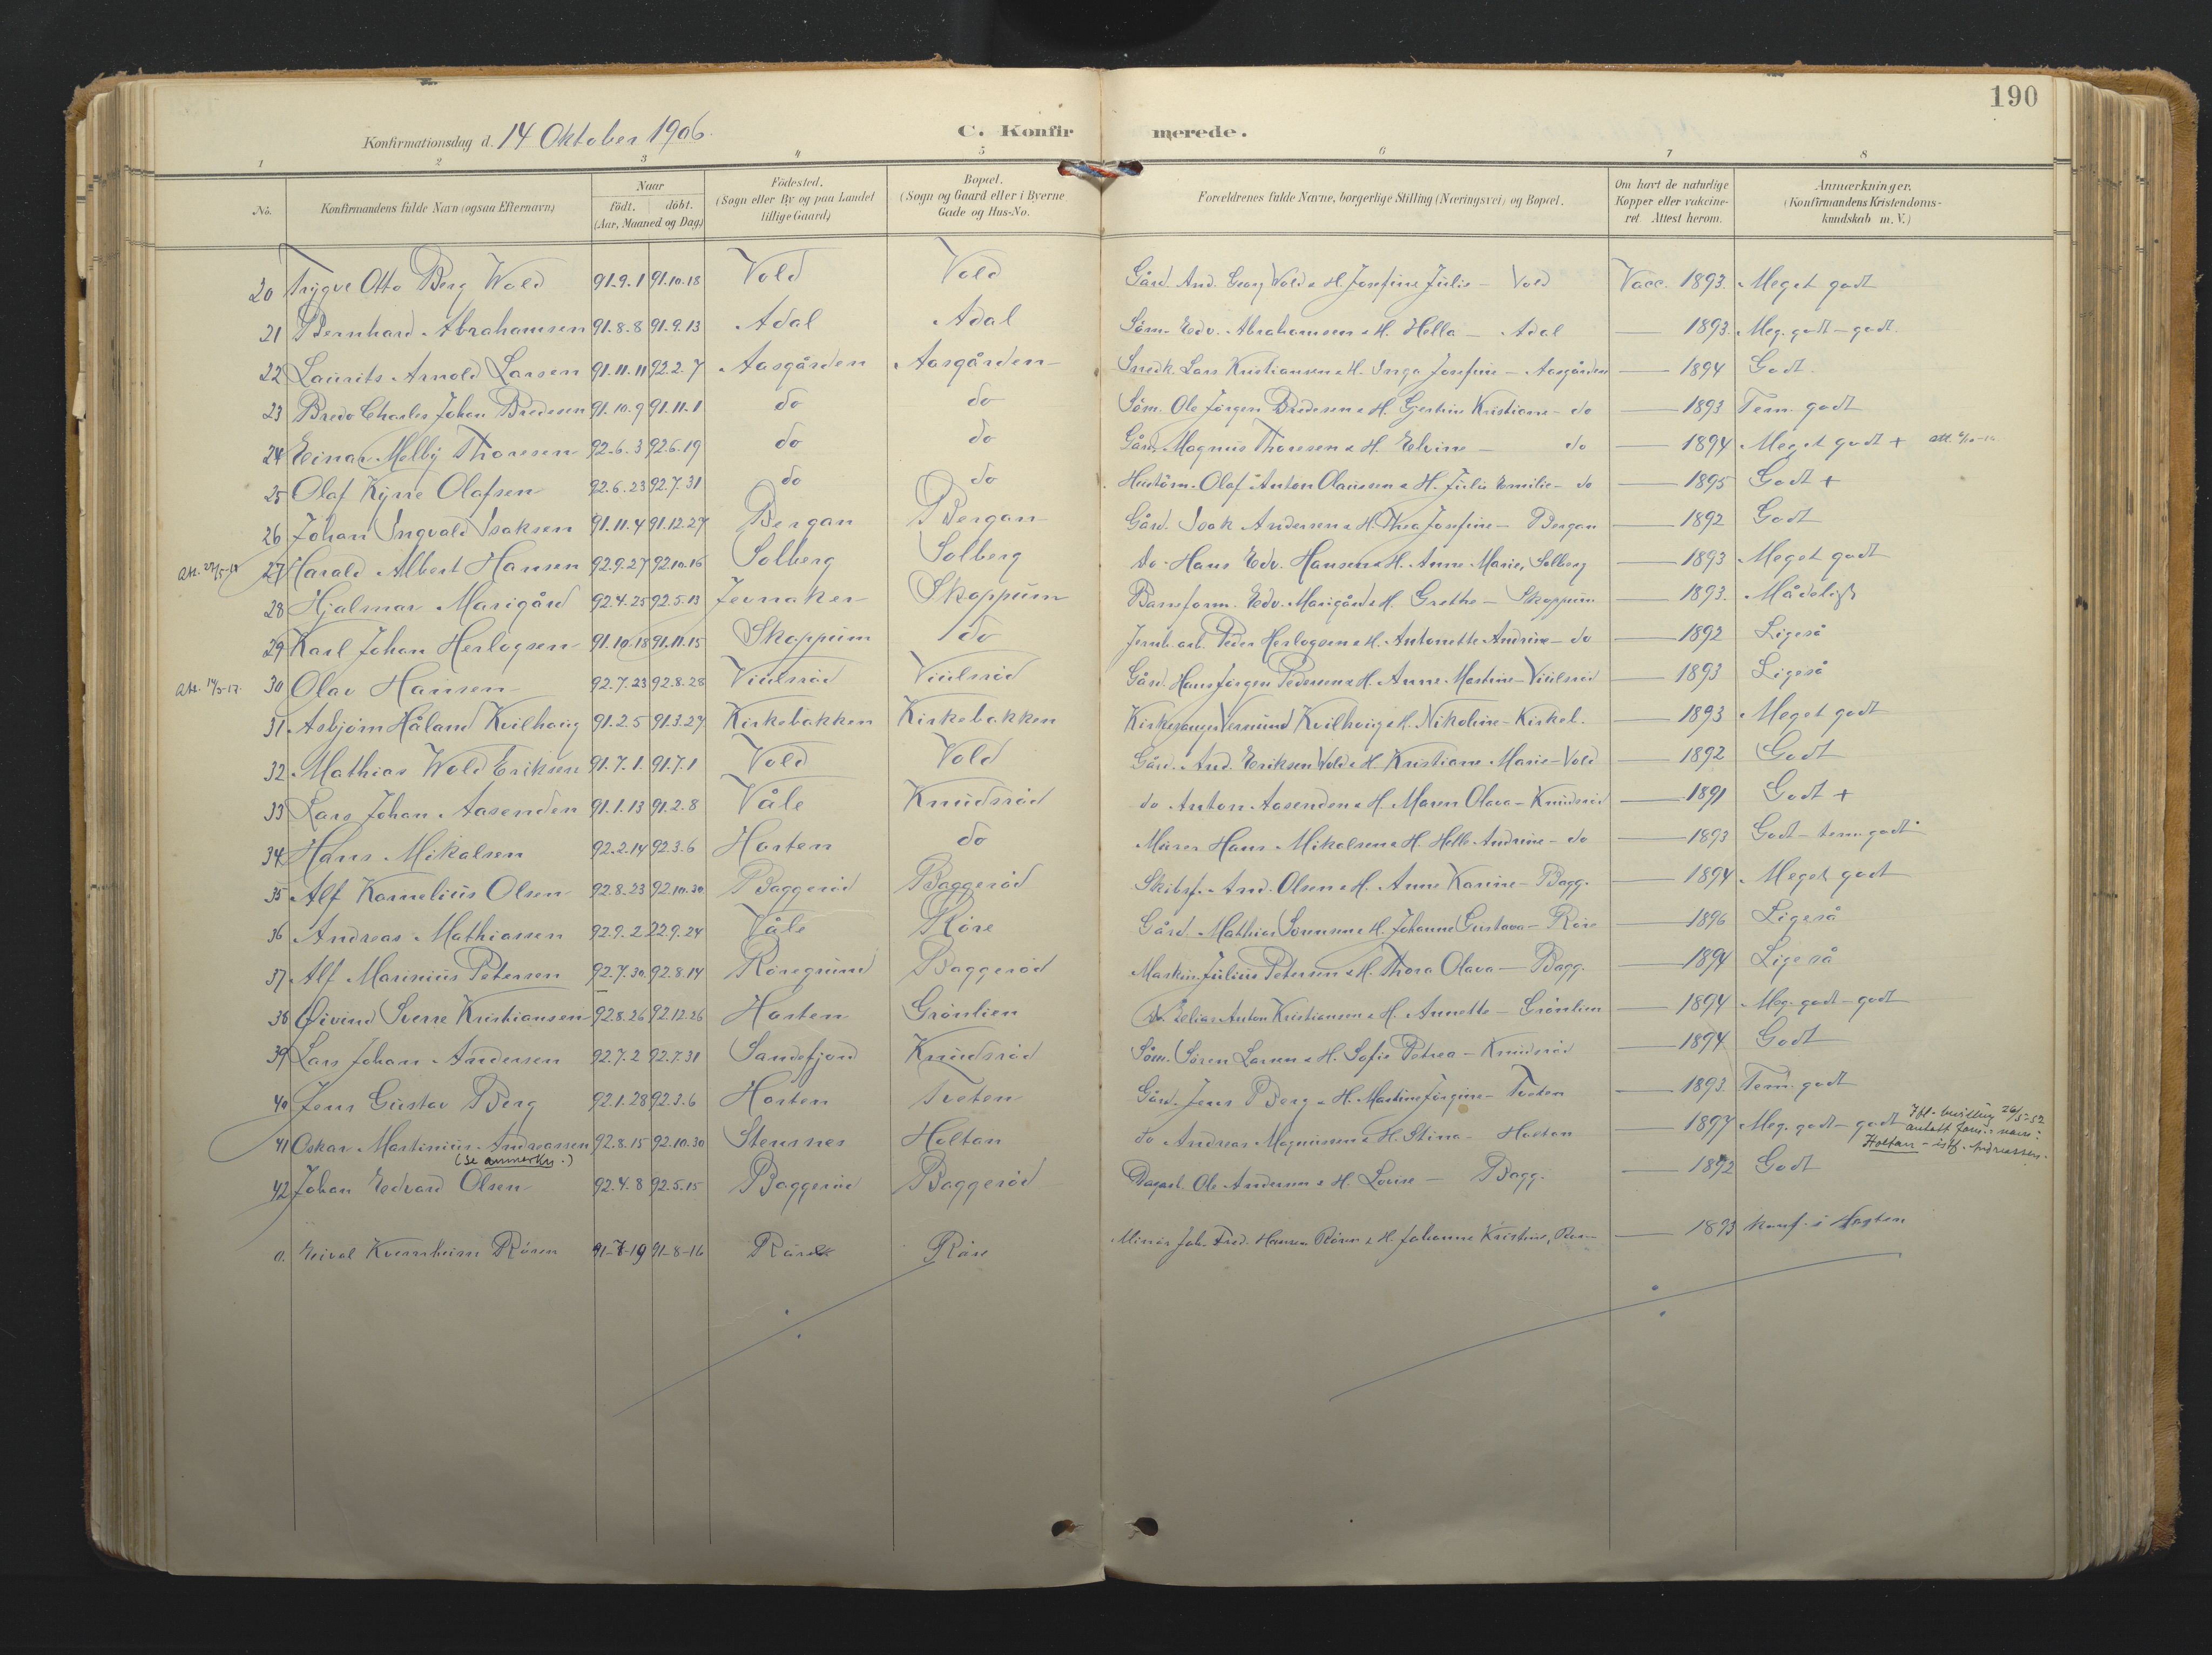 190
Konfirmationsdag d. 14 Oktober 1906.
C. Konfirmerede.
1 2 3 4 5 6 7 8
No. Konfirmandens fulde Navn (ogsaa Efternavn) Naar født. døbt. (Aar, Maaned og Dag) Födested. (Sogn eller By og paa Landet tillige Gaard) Bopæl. (Sogn og Gaard eller i Byerne Gade og Hus-No. Forældrenes fulde Navne, borgerlige Stilling (Næringsvei) og Bopæl. Om havt de naturlige Kopper eller vakcineret Attest herom. Anmærkninger. (Konfirmandens Kristendomskundskab m. V.)
20 Trygve Otto Berg Wold 91.9.1 91.10.18 Vold Vold Gård. And. Georg Wold & H. Josefine Julie - Vold Vacc. 1893. Meget godt
21 Bernhard Abrahamsen 91.8.8 91.9.13 Adal Adal Söm. Edv. Abrahamsen & H. Hella - Adal — 1893. Meg. godt - godt.
22 Laurits Arnold Larsen 91.11.11 92.2.7 Aasgården Aasgården Snedk. Lars Kristiansen & H. Inga Josefine - Aasgården — 1894 Godt.
23 Bredo Charles Johan Bredesen 91.10.9 91.11.1 do do Söm. Ole Jörgen Bredesen & H. Gertine Kristiane - do — 1893 Tem. godt
24 Einar Melby Thoresen 92.6.3 92.6.19 do do Gård. Magnus Thoresen & H. Elvine - do — 1894 Meget godt +
25 Olaf Kyrre Olafsen 92.6.23 92.7.31 do do Olaf Anton Olaussen & H. Julie Emilie - do — 1895 Godt +
26 Johan Ingvald Isaksen 91.11.4 91.12.27 Bergan Bergan Gård. Isak Andersen & H. Thea Josefine - Bergan — 1892 Godt
27 Harald Albert Hansen 92.9.27 92.10.16 Solberg Solberg do - Hans Edv. Hansen & H. Anne Marie, Solberg — 1893 Meget godt
28 Hjalmar Marigård 92.4.25 92.5.13 Jevnaker Skoppum Baneform. Edv. Marigård & H. Grethe - Skoppum — 1893. Mådeligt
29 Karl Johan Herlogsen 91.10.18 91.11.15 Skoppum do Jernb.arb. Peder Herlogsen & H. Antonette Andrine - do — 1892 Ligeså
att. 14/3-17. 30 Olav Hansen 92.7.23 92.8.28 Viulsröd Viulsröd Gård. Hans Jörgen Pedersen & H. Anne Mathine - Viulsröd — 1893 Ligeså
31 Asbjörn Håland Kvilhaug 91.2.5 91.3.27 Kirkebakken Kirkebakken Kirkesanger Vermund Kvilhaug & H. Nikoline - Kirkeb. — 1893 Meget godt
32 Mathias Wold Eriksen 91.7.1. 91.7.1 Vold Vold Gård. And. Eriksen Vold & H. Kristiane Marie - Vold — 1892 Godt
33 Lars Johan Aasenden 91.1.13 91.2.8 Våle Knudsröd do Anton Aasenden & H. Maren Olava - Knudsröd — 1891 Godt +
34 Hans Mikalsen 92.2.14 92.3.6 Horten do Murer Hans Mikalsen & H. Helle Andrine - do — 1893 Godt - tem. godt
35 Alf Kornelius Olsen 92.8.23 92.10.30 Baggeröd Baggeröd Skibsf. And. Olsen & H. Anne Karine - Bagg. — 1894 Meget godt
36 Andreas Mathiassen 92.9.2 22.9.24 Våle Röre Gård. Mathias Sörensen & H. Johanne Gustava - Röre — 1896 Ligeså
37 Alf Marinius Petersen 92.7.30. 92.8.14 Röregrund Baggeröd Maskin. Julius Petersen & H. Thora Olava - Bagg. — 1894 Ligeså
38 Øivind Sverre Kristiansen 92.8.26 92.12.26 Horten Grönlien do Elias Anton Kristiansen & H. Annette - Grönlien — 1894 Meg. godt - godt
39 Lars Johan Andersen 92.7.2 92.7.31 Sandefjord Knudsröd Söm. Sören Larsen & H. Sofie Petrea - Knudsröd — 1894 Godt
40 Jens Gustav Berg 92.1.28 92.3.6 Horten Tveten Gård. Jens Berg & H. Martine Jörgine - Tveten — 1893. Tem. godt
41 Oskar Martinius Andreassen 92.8.15 92.10.30 Stensnes Holtan do Andreas Magnussen & H. Stina - Holtan — 1897 Meg. godt - godt Ifl. bevilling 26/5-52 antatt fam.navn: Holtan - istf. Andreassen.
(se anmerkn.)
42 Johan Edvard Olsen 92.4.8 92.5.15 Baggeröd Baggeröd Dagarb. Ole Andersen & H. Lovise - Bagg. — 1892 Godt
a. Eival Kvernheim Rören 91-7-19 91-8-16 Röre Röre Joh. Fred. Hansen Rören & H. Johanne Kristine, — 1893 konf. i Horten